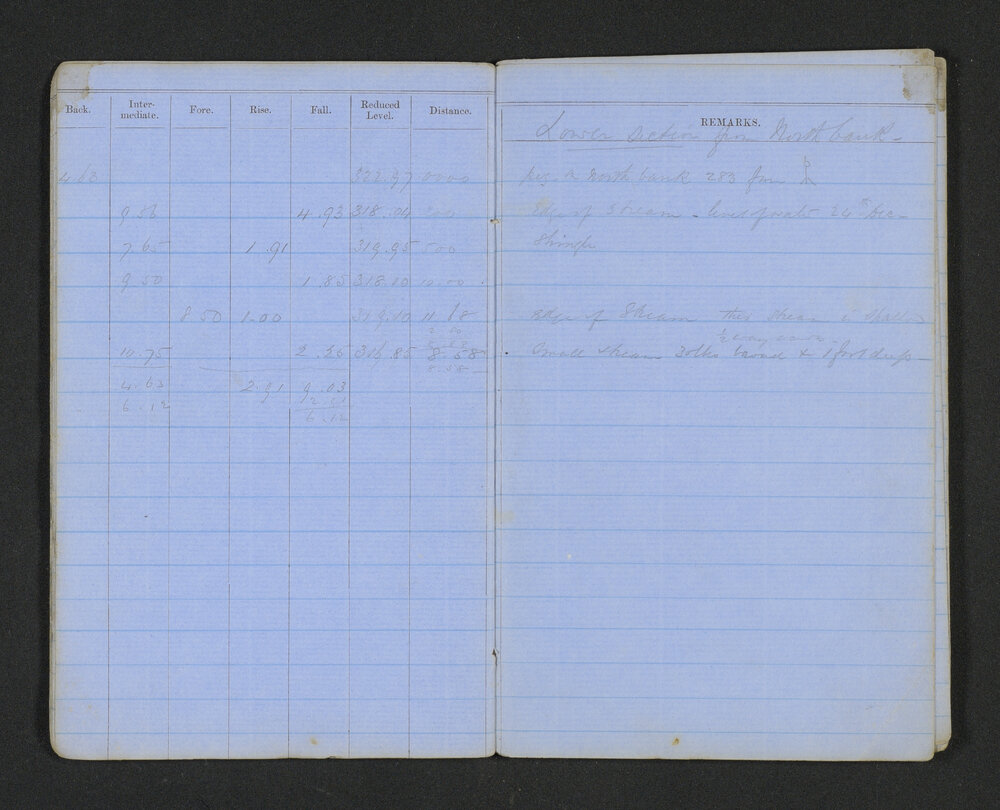 Back. Inter-mediate. Fore. Rise. Fall. Reduced Level. Distance.
4.63 322.97 0000
9.56 4.93 318.04
7.65 1.91 319.95 500
9.50 1.85 318.10 10.00
8.50 1.00 319.10 11
10.75 2.25 316.85 8.58
8.58
4.63 2.91 9.03
6.12 2.91
6.12
REMARKS.
Lower section from North bank
North bank 283 from
Edge of Stream - level of water 24th Dec
Shingle
edge of Stream this stream is
Small stream 30lks broad & 1 foot deep